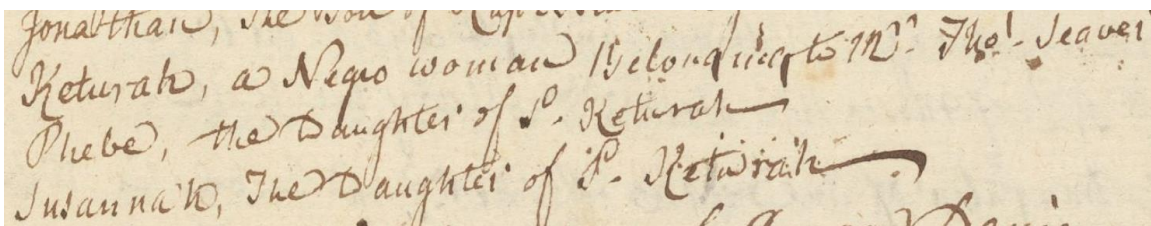 Jonathan, The Son of
Keturah, a Negro woman Belonging to Mr. Thos. Seaver
Phebe, the Daughter of Sd. Keturah
Susannah, The Daughter of Sd. Keturah